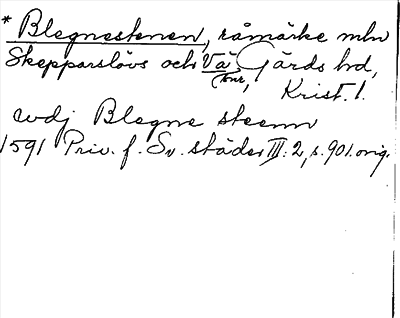 * Blegnestenen, råmärke mln
Skepparslövs och Vä Gärds hd,
(tnr, Krist. l.
wdj Blegne steenn
1591 Priv. f. Sv. städer III: 2, s. 901. orig.